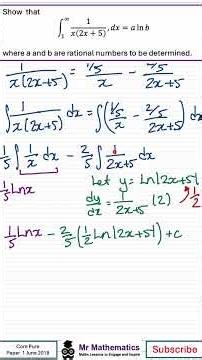 Show that
∫₁^∞ 1/(x(2x+5)), dx = a ln b
where a and b are rational numbers to be determined.
1/(x(2x+5)) = (1/5)/x − (2/5)/(2x+5)
∫ 1/(x(2x+5)) dx = ∫ ((1/5)/x − (2/5)/(2x+5)) dx
1/5 ∫ 1/x dx − 2/5 ∫ 1/(2x+5) dx
Let y = ln|2x+5|
1/5 lnx
dy/dx = 1/(2x+5) (2) 1/2
1/5 lnx − 2/5 (1/2 ln|2x+5|) + c
Core Pure
Paper 1 June 2018
Mr Mathematics
Maths Lessons to Engage and Inspire
Subscribe